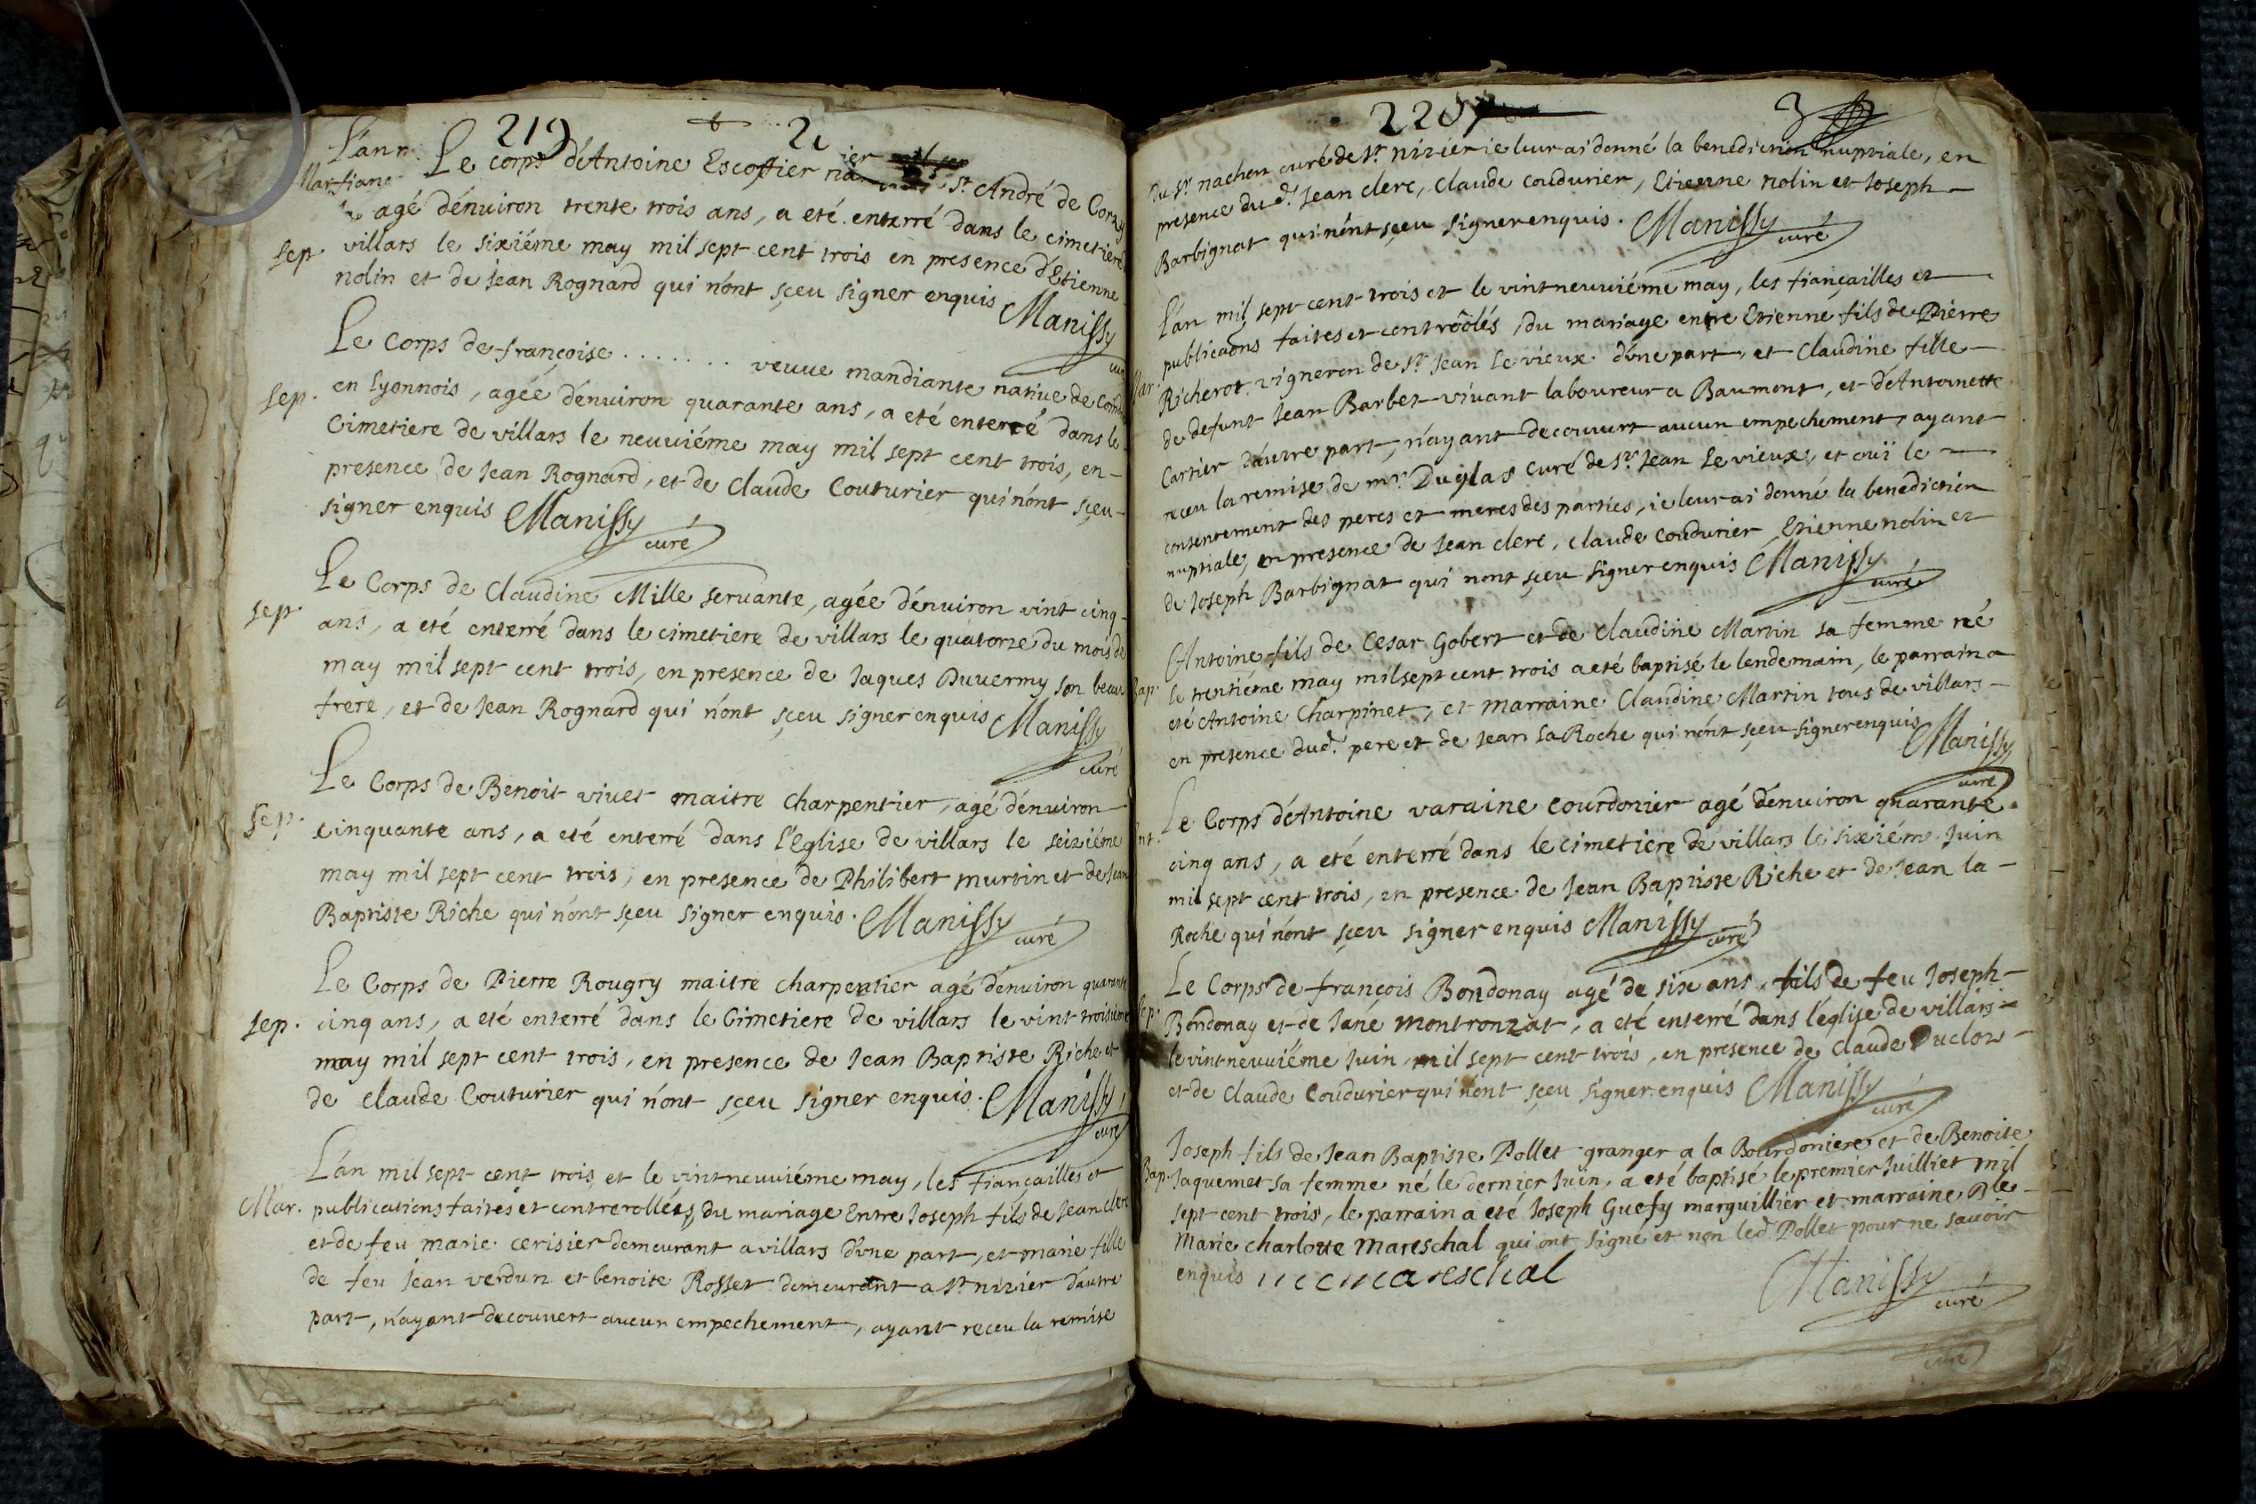 219 2
L'ann
Le corps d'Antoine Escoffier St André de Corzy
agé d'enuiron trente trois ans, a eté enterré dans le cimetiere
sep. villars le sixiéme may mil sept cent trois en presence d'Etienne
nolin et de Jean Rognard qui n'ont sçeu signer enquis Manissy
curé
Le Corps de françoise . . . . . . . veuue mandiante natiue de
sep. en Lyonnois, agée d'enuiron quarante ans, a eté enterré dans le
Cimetiere de villars le neuuiéme may mil sept cent trois, en-
presence de Jean Rognard, et de Claude Couturier qui n'ont sçeu-
signer enquis Manissy
curé
Le Corps de Claudine Mille seruante, agée d'enuiron vint cinq-
sep. ans, a eté enterré dans le cimetiere de villars le quatorze du mois de
may mil sept cent trois, en presence de Jaques Duvermy son beau
frere, et de Jean Rognard qui n'ont sçeu signer enquis Manissy
curé
Le Corps de Benoit viuet maitre charpentier, agé d'enuiron
sep. cinquante ans, a eté enterré dans l'Eglise de villars le seiziéme
may mil sept cent trois, en presence de Philibert murtin et de Jean
Baptiste Riche qui n'ont sçeu signer enquis. Manissy
curé
Le Corps de Pierre Rougry maitre charpentier agé d'enuiron quarante
sep. cinq ans, a eté enterré dans le Cimetiere de villars le vint troisiéme
may mil sept cent trois, en presence de Jean Baptiste Riche et
de claude Couturier qui n'ont sçeu signer enquis. Manissy
curé
L'an mil sept cent trois et le vint neuuiéme may, les fiançailles et
Mar. publications faites et contrerollées, du mariage Entre Joseph fils de Jean clerc
et de feu marie cerisier demeurant a villars d'vne part, et marie fille
de feu Jean verdun et benoite Rosset demeurant a St nizier d'autre
part, n'ayant decouvert aucun empechement, ayant receu la remise
220 3
Du Sr nachon curé de St nizier ie leur ai donné la benediction nuptiale, en
presence du d. Jean clerc, Claude coudurier, Etienne nolin et Joseph-
Barbignat qui n'ont sçeu signer enquis. Manissy
curé
L'an mil sept cent trois et le vint neuuiéme may, les fiançailles et
publicaons faites et contrôôlés, du mariage entre Etienne fils de Pierre
Mar. Richerot vigneron de St Jean Le vieux d'vne part, et Claudine fille-
de defunt Jean Barbet viuant laboureur a Baumont, et d'Antoinette
Cartier d'autre part, n'ayant decouuert aucun empechement, ayant
receu la remise de mr Duglas Curé de St Jean Le vieux, et ouï le
consentement des peres et meres des parties, ie leur ai donné la benediction
nuptiale, en presence de Jean clerc, claude coudurier, Etienne nolin et
de Joseph Barbignat qui nont sçeu signer enquis Manissy
curé
Antoine fils de Cesar Gobert et de Claudine Martin sa femme né
Bap. le trentiéme may mil sept cent trois a eté baptisé le lendemain, le parrain a
eté Antoine Charpinet, et marraine Claudine Martin tous de villars-
en presence dud. pere et de Jean La Roche qui n'ont sçeu signer enquis
Manissy
curé
Le Corps d'Antoine varaine courdonier agé d'enuiron quarante
cinq ans, a eté enterré dans le cimetiere de villars le sixiéme Juin
mil sept cent trois, en presence de Jean Baptiste Riche et de Jean la-
Roche qui n'ont sçeu signer enquis Manissy
curé
Le Corps de françois Bondonay agé de six ans, fils de feu Joseph-
sep. Bondonay et de Jane montronzat, a eté enterré dans l'église de villars
le vint neuuiéme Juin, mil sept cent trois, en presence de Claude Duclos-
et de Claude Coudurier qui n'ont sçeu signer enquis Manissy
curé
Joseph fils de Jean Baptiste Pollet granger a la Bourdoniere et de Benoite
Bap. Jaquemet sa femme né le dernier Juin, a eté baptisé le premier Juilliet mil
sept cent trois, le parrain a eté Joseph Guefy marguillier et marraine Dle
Marie charlotte Mareschal qui ont signé et non led. Pollet pour ne sauoir
enquis mareschal Manissy
curé
curé